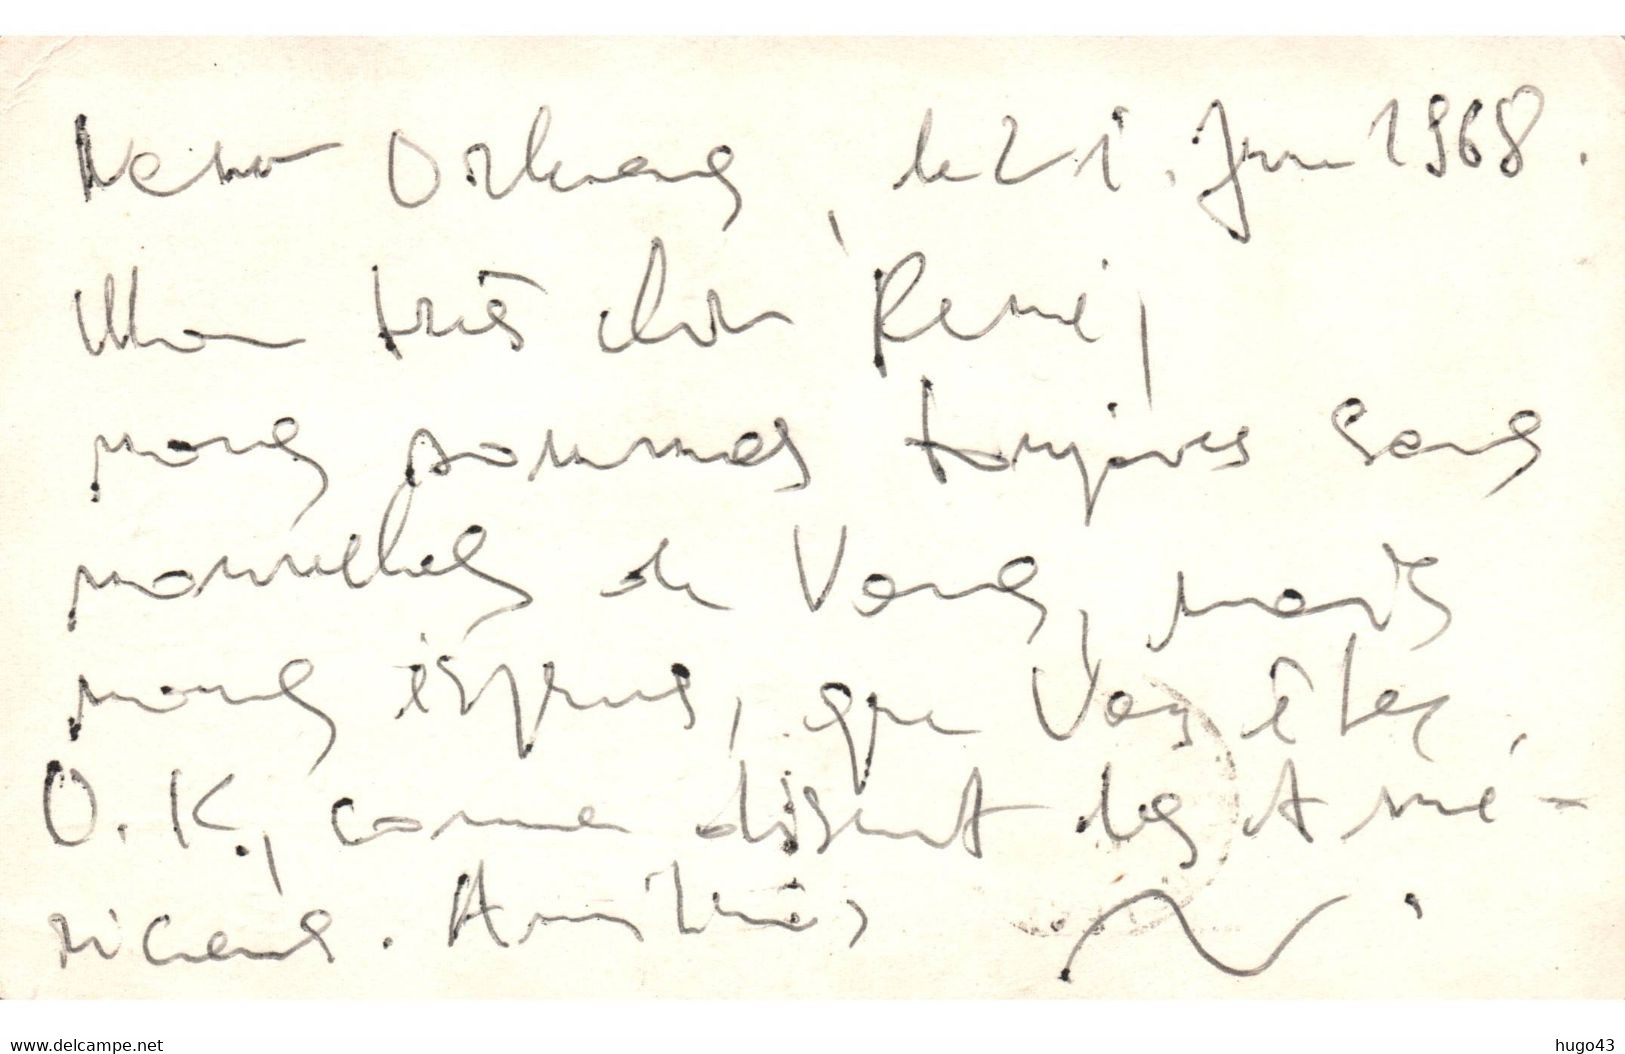 New Orleans, le 21. Juin 1968.
Mon très cher René,
nous sommes toujours sans
nouvelles de Vous, mais
nous espérons, que Vous êtes
O.K, comme disent les Amé-
ricains. Amitiés
www.delcampe.net
hugo43